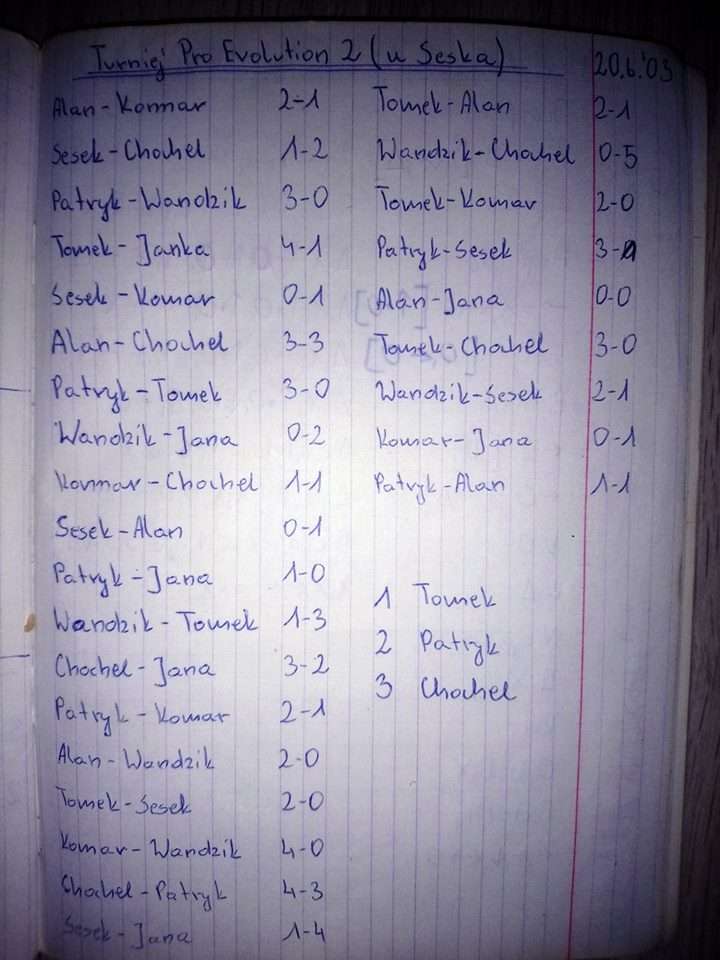 Turniej Pro Evolution 2 (u Seska)
20.6.'03
Alan-Komar 2-1
Sesek-Chochel 1-2
Patryk-Wandzik 3-0
Tomek-Janka 4-1
Sesek-Komar 0-1
Alan-Chochel 3-3
Patryk-Tomek 3-0
Wandzik-Jana 0-2
Komar-Chochel 1-1
Sesek-Alan 0-1
Patryk-Jana 1-0
Wandzik-Tomek 1-3
Chochel-Jana 3-2
Patryk-Komar 2-1
Alan-Wandzik 2-0
Tomek-Sesek 2-0
Komar-Wandzik 4-0
Chochel-Patryk 4-3
Sesek-Jana 1-4
Tomek-Alan 2-1
Wandzik-Chochel 0-5
Tomek-Komar 2-0
Patryk-Sesek 3-1
Alan-Jana 0-0
Tomek-Chochel 3-0
Wandzik-Sesek 2-1
Komar-Jana 0-1
Patryk-Alan 1-1
1 Tomek
2 Patryk
3 Chochel